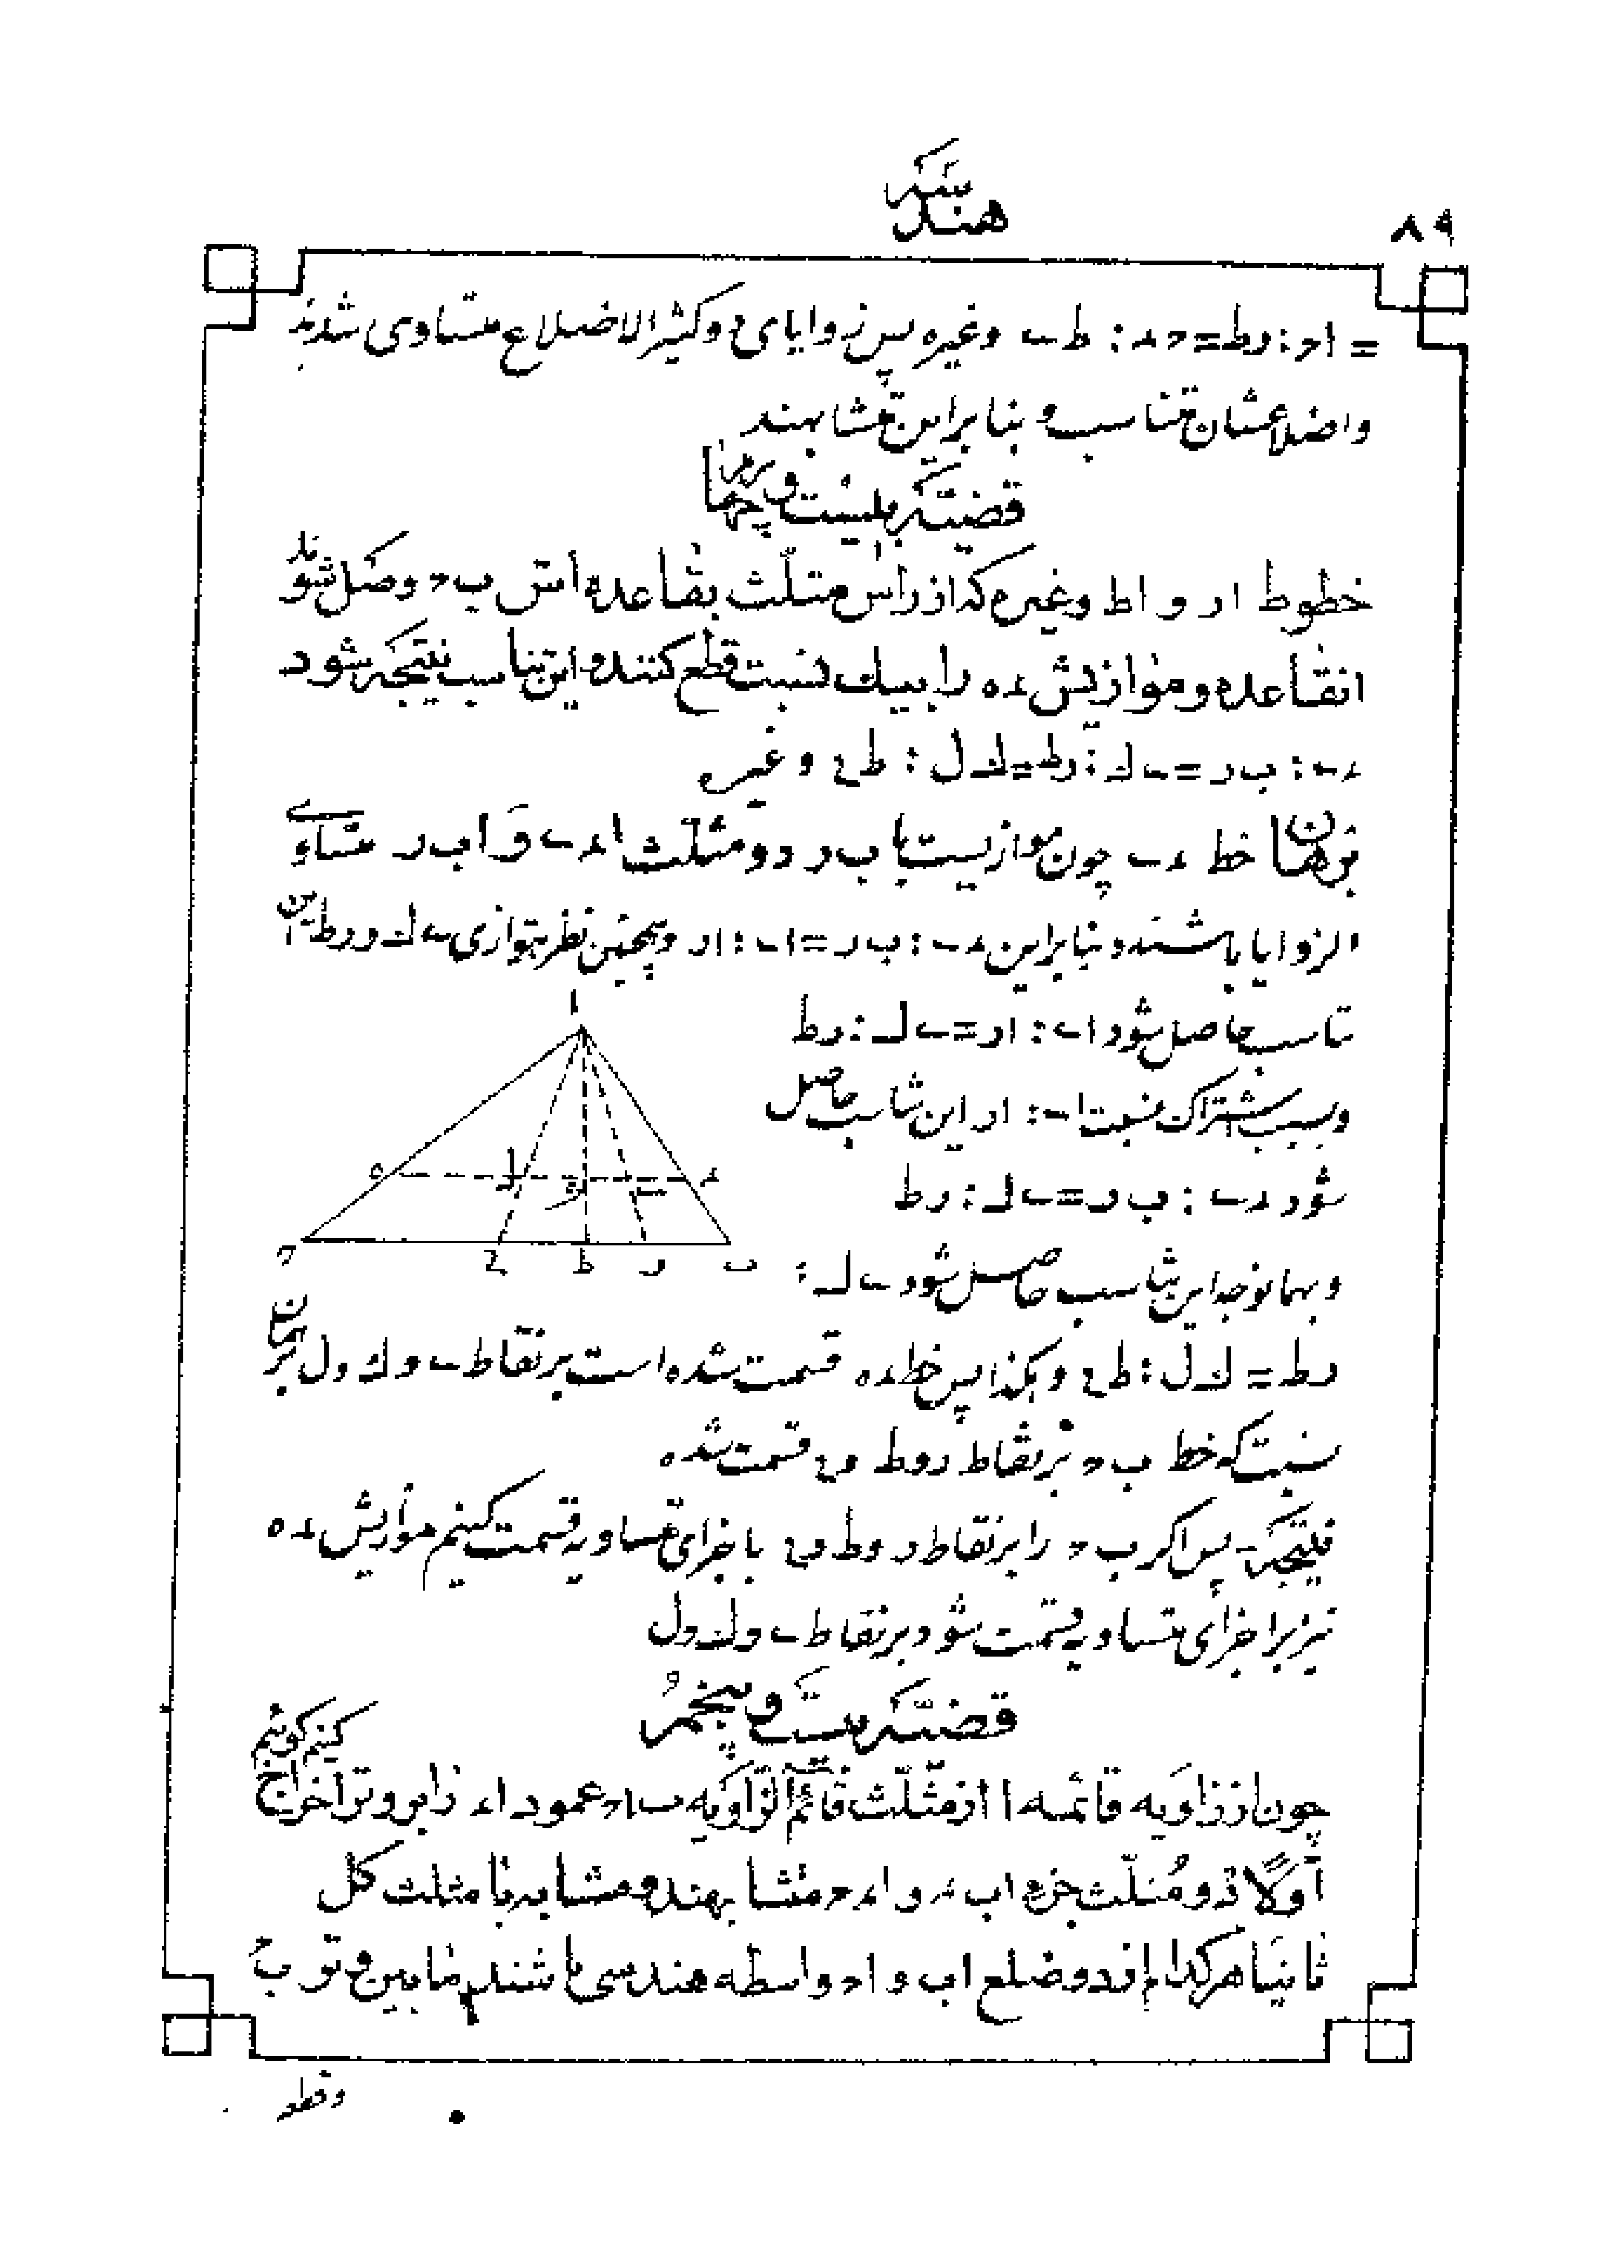 هندسه
۸۹
= اح : رط = حد : طى وغیره پس زوایای دو کثیرالاضلاع متساوی شدند
واضلاعشان متناسب و بنابراین متشابهند
قضیّه بیست و چهارم
خطوط ار و اط وغیره که از رأس مثلّث بقاعده‌اش ب ح وصل شوند
انقاعده و موازیش ده را بیک نسبت قطع کنند و این تناسب نتیجه شود
دى : ب ر = ى ك : رط = ك ل : ط ع وغیره
برهان خط دى چون موازیست با ب ر دو مثلّث ادى و اب ر متساوی
الزوایا باشند و بنابراین دى : ب ر = اى : ار وهمچنین نظر بتوازی ى ك و رط این
تناسب حاصل شود اى : ار = ى ك : رط
وبسبب اشتراک نسبت اى : ار این تناسب حاصل
شود دى : ب ر = ى ك : رط
وبهمانوجه این تناسب حاصل شود ى ك :
رط = ك ل : ط ع وهکذا پس خط ده قسمت شده است بر نقاط ى و ك و ل بهمان
نسبت که خط ب ح بر نقاط ر و ط و ع قسمت شده
نتیجه پس اکر ب ح را بر نقاط ر و ط و ع باجزای متساویه قسمت کنیم موازیش ده
نیز براجزای متساویه قسمت شود بر نقاط ى و ك و ل
ا
ه ل ك ى د
ح ع ط ر ب
قضیّه بیست و پنجم
چون از زاویه قائمه ا از مثلّث قائم‌الزاویه ب ا ح عمود اد را بر وتر اخراج کنیم کوئیم
اوّلاً دو مثلّث جزء اب د و اد ح متشابهند و مشابه با مثلث کل
ثانیاً هر کدام از دو ضلع اب و اح واسطه هندسی باشند مابین وتر ب ح
وقطعه